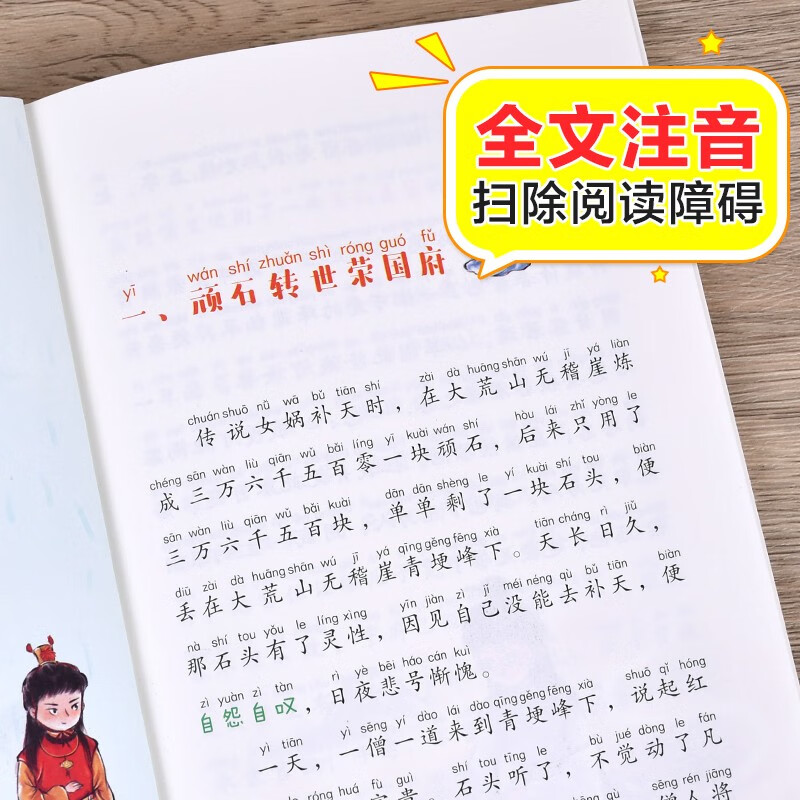 全文注音
扫除阅读障碍
yī wán shí zhuǎn shì róng guó fǔ
一、顽石转世荣国府
chuán shuō nǚ wā bǔ tiān shí zài dà huāng shān wú jī yá liàn
传说女娲补天时，在大荒山无稽崖炼
chéng sān wàn liù qiān wǔ bǎi líng yī kuài wán shí hòu lái zhǐ yòng le
成三万六千五百零一块顽石，后来只用了
sān wàn liù qiān wǔ bǎi kuài dān dān shèng le yí kuài shí tou biàn
三万六千五百块，单单剩了一块石头，便
diū zài dà huāng shān wú jī yá qīng gěng fēng xià tiān cháng rì jiǔ
丢在大荒山无稽崖青埂峰下。天长日久，
nà shí tou yǒu le líng xìng yīn jiàn zì jǐ méi néng qù bǔ tiān biàn
那石头有了灵性，因见自己没能去补天，便
zì yuàn zì tàn rì yè bēi háo cán kuì
自怨自叹，日夜悲号惭愧。
yì tiān yì sēng yí dào lái dào qīng gěng fēng xià shuō qǐ hóng
一天，一僧一道来到青埂峰下，说起红
róng huá fù guì shí tou tīng le bù jué dòng le fán
富贵。石头听了，不觉动了凡
sēng rén jiāng
僧人将